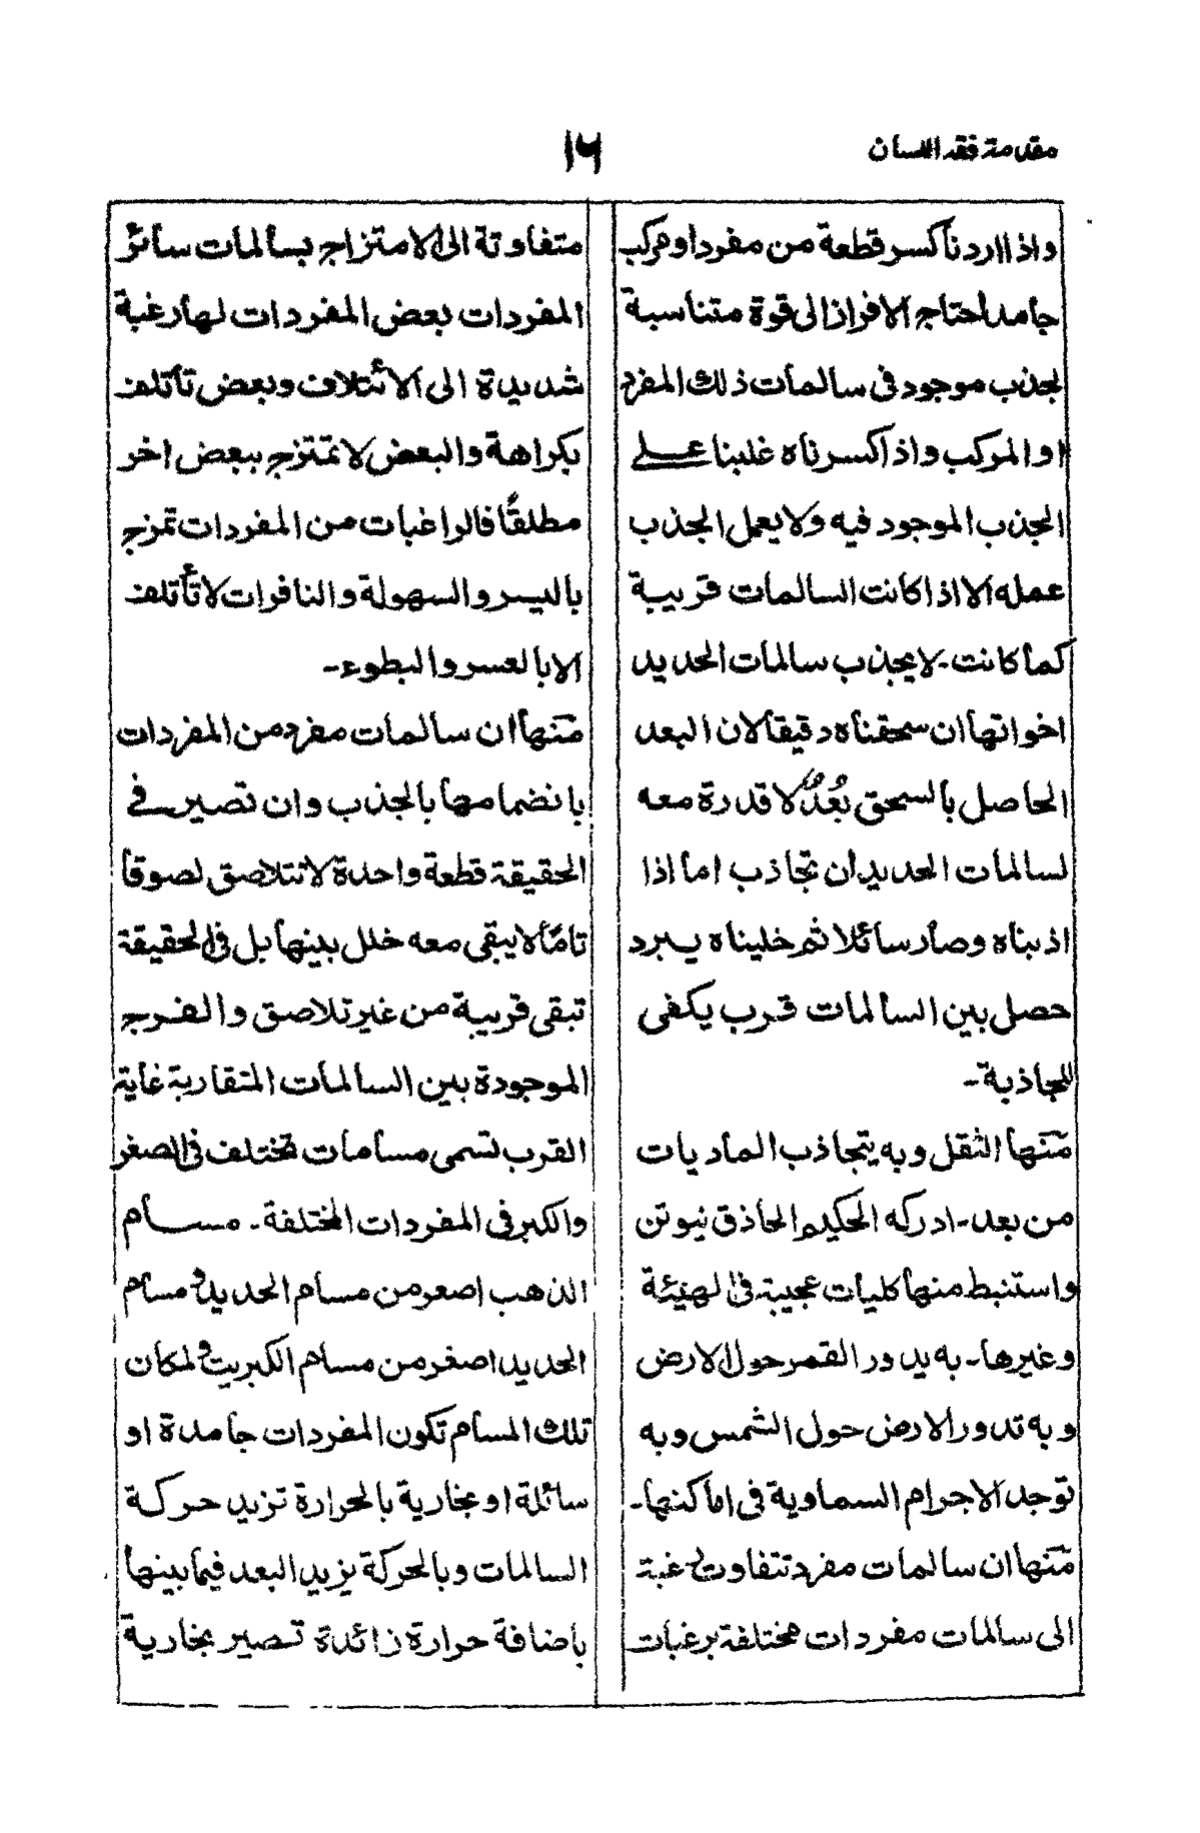 مقدمة فقه اللسان
١٦
واذا اردنا كسر قطعة من مفرد او مركب
جامد احتاج الافراز الى قوة متناسبة
لجذب موجود فى سالمات ذلك المفرد
او المركب واذا كسرناه غلبنا على
الجذب الموجود فيه ولا يعمل الجذب
عمله الا اذا كانت السالمات قريبة
كما كانت - لا يجذب سالمات الحديد
اخواتها ان سحقناه دقيقا لان البعد
الحاصل بالسحق بُعدٌ لا قدرة معه
لسالمات الحديد ان تجاذب اما اذا
اذبناه وصار سائلا ثم خليناه يبرد
حصل بين السالمات قرب يكفى
للجاذبة -
منها الثقل وبه يتجاذب الماديات
من بعد - ادركه الحكيم الحاذق نيوتن
واستنبط منها كليات عجيبة فى الهيئة
وغيرها - به يدور القمر حول الارض
وبه تدور الارض حول الشمس وبه
توجد الاجرام السماوية فى اماكنها -
منها ان سالمات مفرد تتفاوت رغبة
الى سالمات مفردات مختلفة برغبات
متفاوتة الى الامتزاج بسالمات سائر
المفردات بعض المفردات لها رغبة
شديدة الى الائتلاف وبعض تأتلف
بكراهة والبعض لا تمتزج ببعض اخر
مطلقًا فالراغبات من المفردات تمزج
باليسر والسهولة والنافرات لا تأتلف
الا بالعسر والبطوء -
منها ان سالمات مفرد من المفردات
بانضمامها بالجذب وان تصير فى
الحقيقة قطعة واحدة لا تتلاصق لصوقا
تامًا لا يبقى معه خلل بينها بل فى الحقيقة
تبقى قريبة من غير تلاصق والفرج
الموجودة بين السالمات المتقاربة غاية
القرب تسمى مسامات تختلف فى الصغر
والكبر فى المفردات المختلفة - مسام
الذهب اصغر من مسام الحديد و مسام
الحديد اصغر من مسام الكبريت و لمكان
تلك المسام تكون المفردات جامدة او
سائلة او بخارية بالحرارة تزيد حركة
السالمات وبالحركة يزيد البعد فيما بينها
باضافة حرارة زائدة تصير بخارية